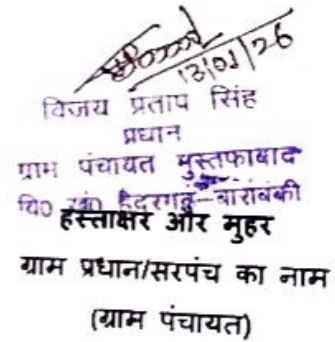 13/01/26
विजय प्रताप सिंह
प्रधान
ग्राम पंचायत मुस्तफाबाद
वि0 खं0 हैदरगढ़-बाराबंकी
हस्ताक्षर और मुहर
ग्राम प्रधान/सरपंच का नाम
(ग्राम पंचायत)